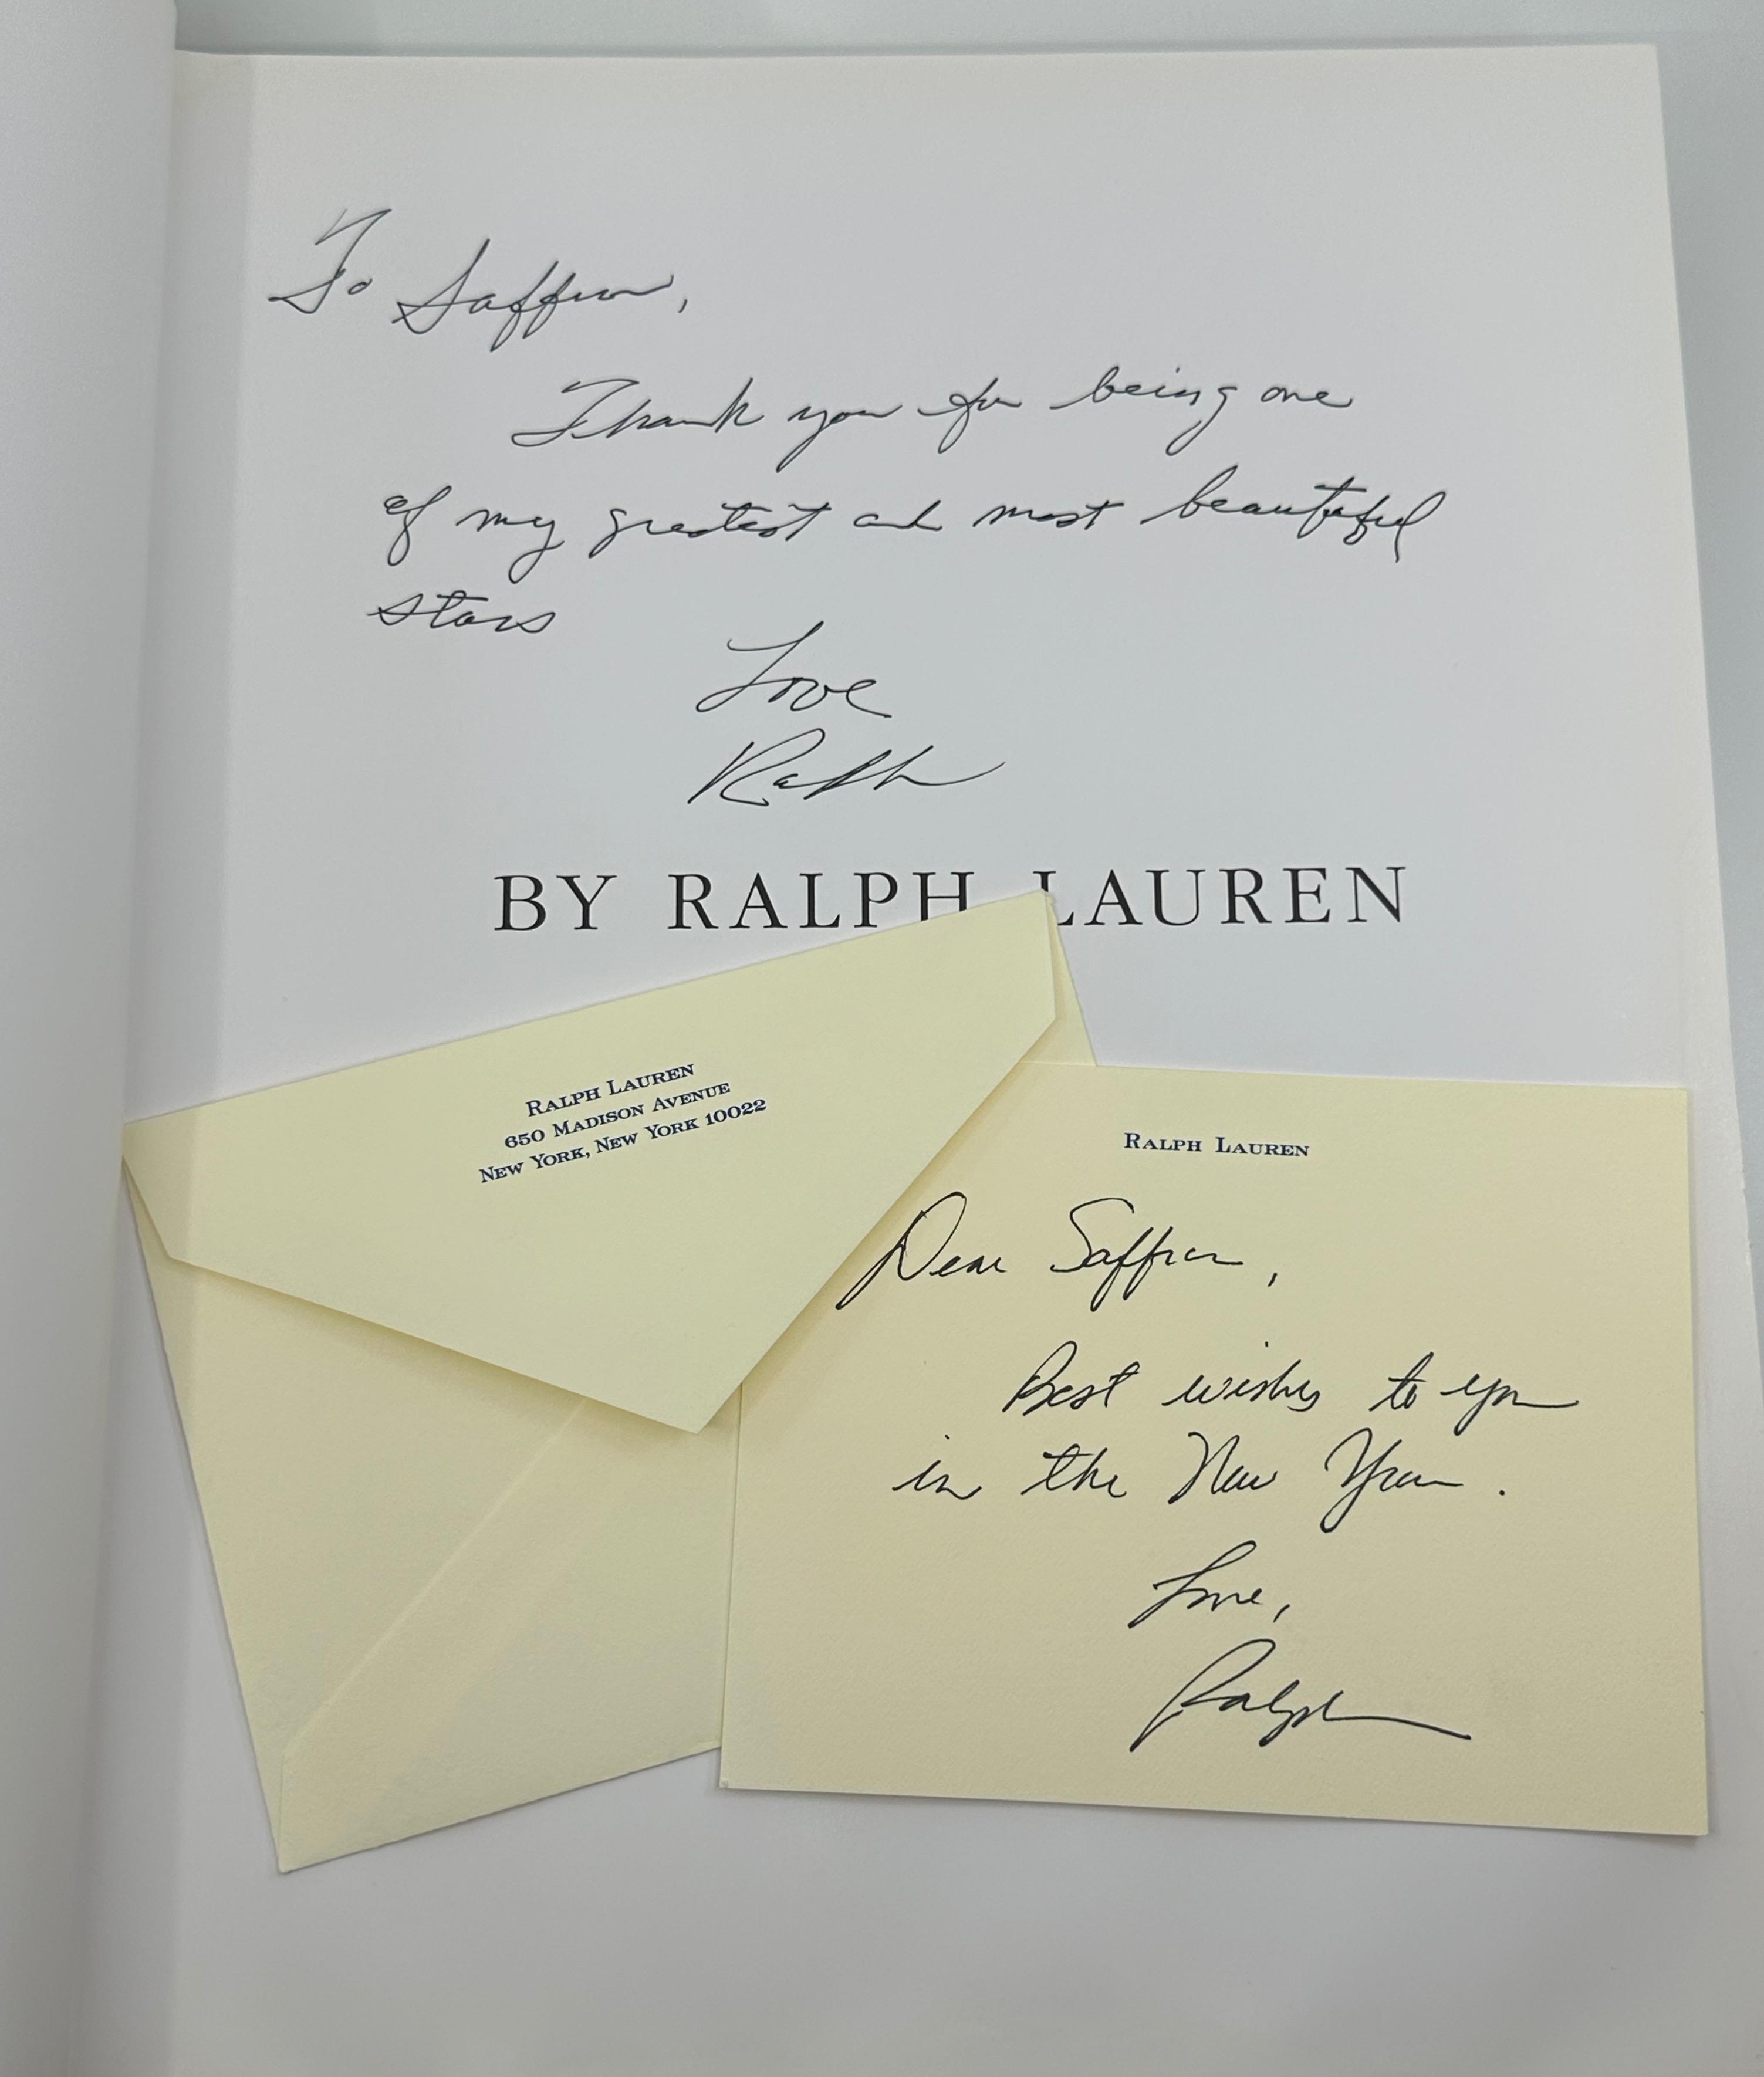 To Saffron,
Thank you for being one
of my greatest and most beautiful
stars
Love
Ralph
BY RALPH LAUREN
RALPH LAUREN
650 MADISON AVENUE
NEW YORK, NEW YORK 10022
RALPH LAUREN
Dear Saffron,
Best wishes to you
in the New Year.
Love,
Ralph